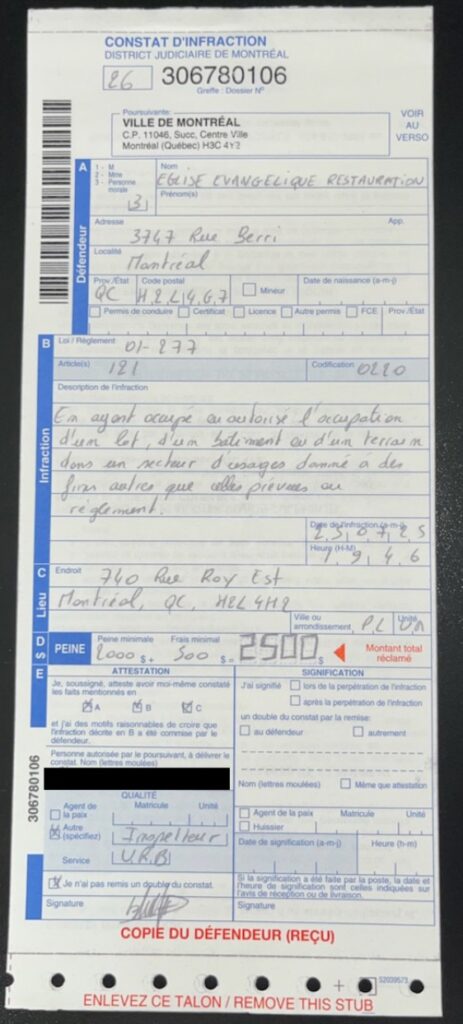 CONSTAT D'INFRACTION
DISTRICT JUDICIAIRE DE MONTRÉAL
26 306780106
Greffe : Dossier N°
Poursuivante:
VILLE DE MONTRÉAL
C.P. 11046, Succ, Centre Ville
Montréal (Québec) H3C 4Y2
VOIR AU VERSO
A
Défendeur
1 - M
2 - Mme
3 - Personne morale
3
Nom
EGLISE EVANGELIQUE RESTAURATION
Prénom(s)
Adresse
App.
3747 Rue Berri
Localité
Montréal
Prov./État
Code postal
Mineur
Date de naissance (a-m-j)
QC H2L4G7
Permis de conduire Certificat Licence Autre permis FCE Prov./État
B
Infraction
Loi / Règlement
01-277
Article(s)
121
Codification
0220
Description de l'infraction
En ayant occupé ou autorisé l'occupation
d'un lot, d'un bâtiment ou d'un terrain
dans un secteur d'usages donné à des
fins autres que celles prévues au
règlement.
Date de l'infraction (a-m-j)
250725
Heure (H-M)
1946
C
Lieu
Endroit
740 Rue Roy Est
Montréal, QC, H2L4H2
Ville ou arrondissement
PL
Unité
D
$
PEINE
Peine minimale
2000 $ +
Frais minimal
500 $ =
2500 $
Montant total réclamé
E
ATTESTATION
Je, soussigné, atteste avoir moi-même constaté
les faits mentionnés en
A B C
et j'ai des motifs raisonnables de croire que
l'infraction décrite en B a été commise par le
défendeur.
Personne autorisée par le poursuivant, à délivrer le
constat. Nom (lettres moulées)
QUALITÉ
Agent de la paix
Matricule
Unité
Autre (spécifiez)
Inspecteur
Service
U.R.B
Je n'ai pas remis un double du constat.
Signature
SIGNIFICATION
J'ai signifié
lors de la perpétration de l'infraction
après la perpétration de l'infraction
un double du constat par la remise:
au défendeur autrement
Nom (lettres moulées)
Même que attestation
Agent de la paix
Matricule
Unité
Huissier
Date de signification (a-m-j)
Heure (h-m)
Si la signification a été faite par la poste, la date et
l'heure de signification sont celles indiquées sur
l'avis de réception ou de livraison.
Signature
306780106
COPIE DU DÉFENDEUR (REÇU)
S2039573
ENLEVEZ CE TALON / REMOVE THIS STUB